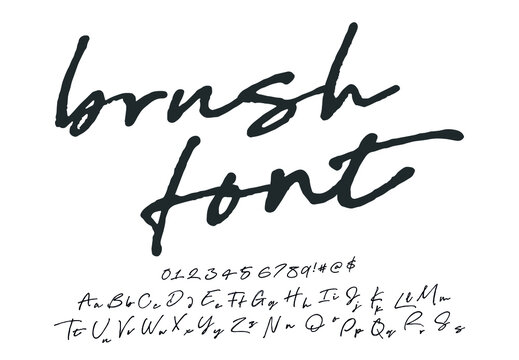 brush
font
0123456789!#@$
Aa Bb Cc Dd Ee Ff Gg Hh Ii Jj Kk Ll Mm
Tt Uu Vv Ww Xx Yy Zz Nn Oo Pp Qq Rr Ss